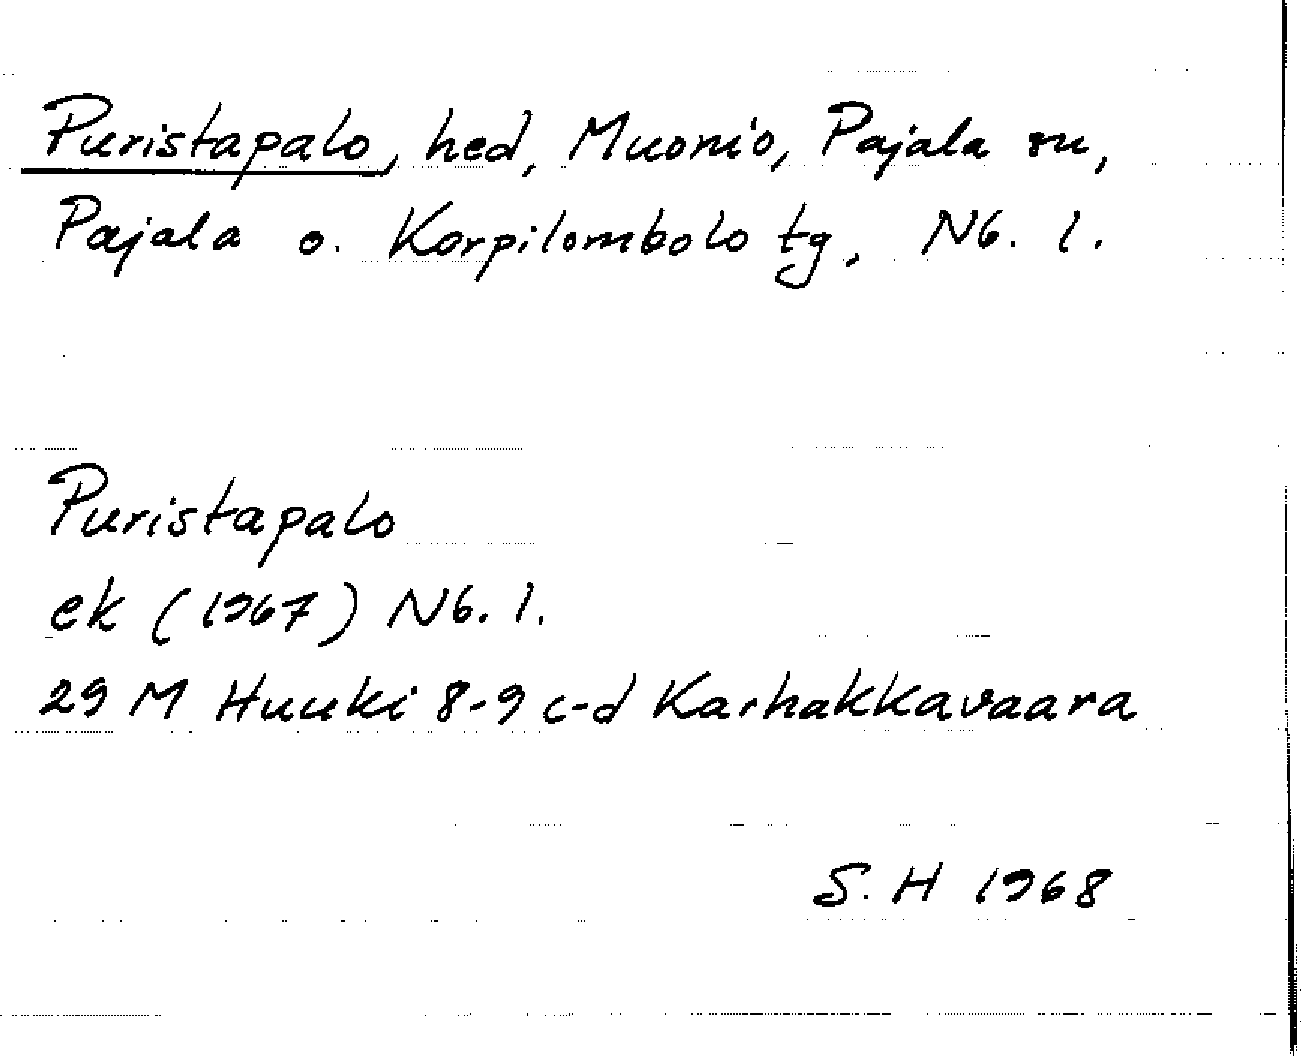 Puristapalo, hed, Muonio, Pajala sn,
Pajala o. Korpilombolo tg, Nb. l.
Puristapalo
ek (1967) Nb. l.
29 M Huuki 8-9 c-d Karhakkavaara
S. H 1968